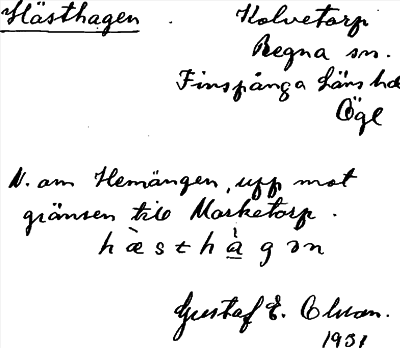 Hästhagen. Kolvetorp
Regna sn.
Finspånga läns hd
Ögl
N. om Hemängen, upp mot
gränsen till Marketorp.
hæ̀sthà̱gən
Gustaf E. Olsson.
1931